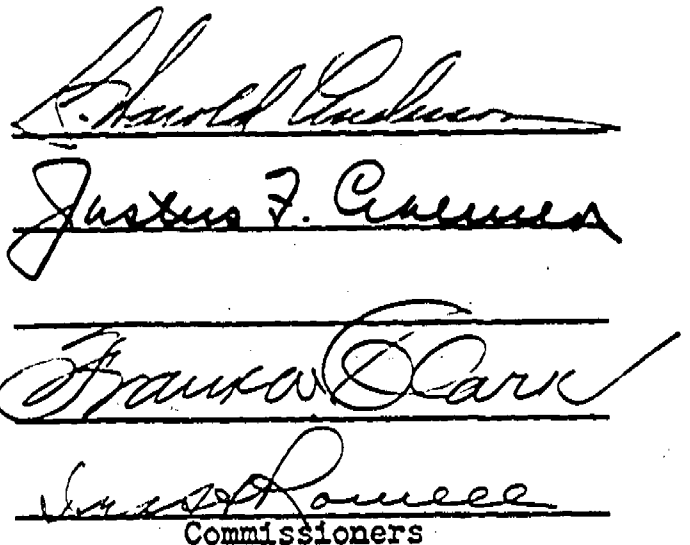 Harold Anderson
Justus F. Craemer
Frank W. Clark
Rowell
Commissioners